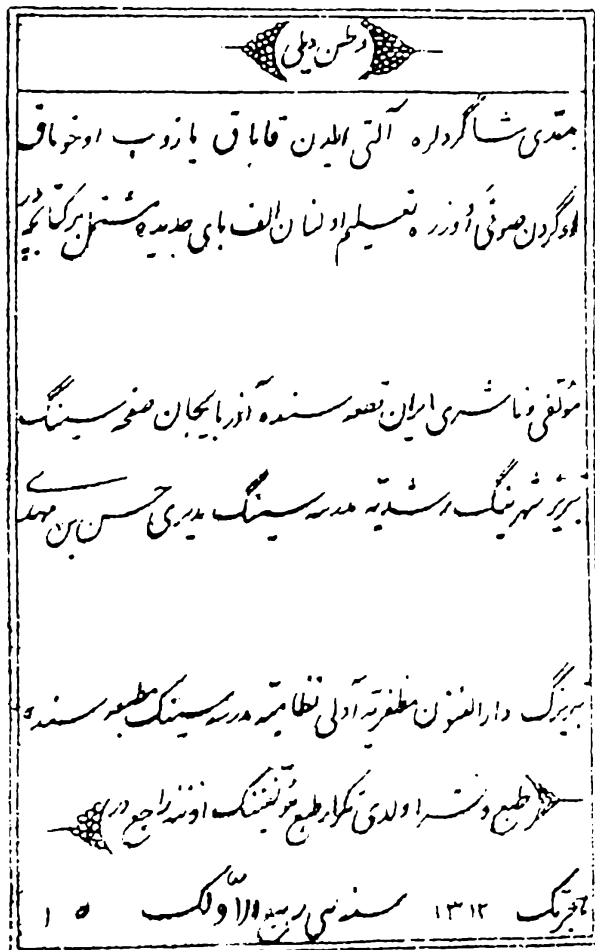 وطن دیلی
مبتدی شاگردلره آلتی ایلدن قاباق یازوب اوخوماق
اوگردن صوتی اوزره تعلیم اولنان الف بای جدیده مشتمل بر کتابچه در
مؤلفی و ناشری ایران قطعه سنده آذربایجان صفحه سینگ
تبریز شهرینگ رشدیه مدرسه سینگ مدیری حسن بن مهدی
تبریزگ دارالفنون مظفریه آدلی نظامیه مدرسه سینک مطبعه سنده
طبع و نشر اولدی تکرار طبع مؤلفننک اوزنه راجع در
هجرتک ۱۳۱۲ سنه سی ربیع الاولک ۱۵